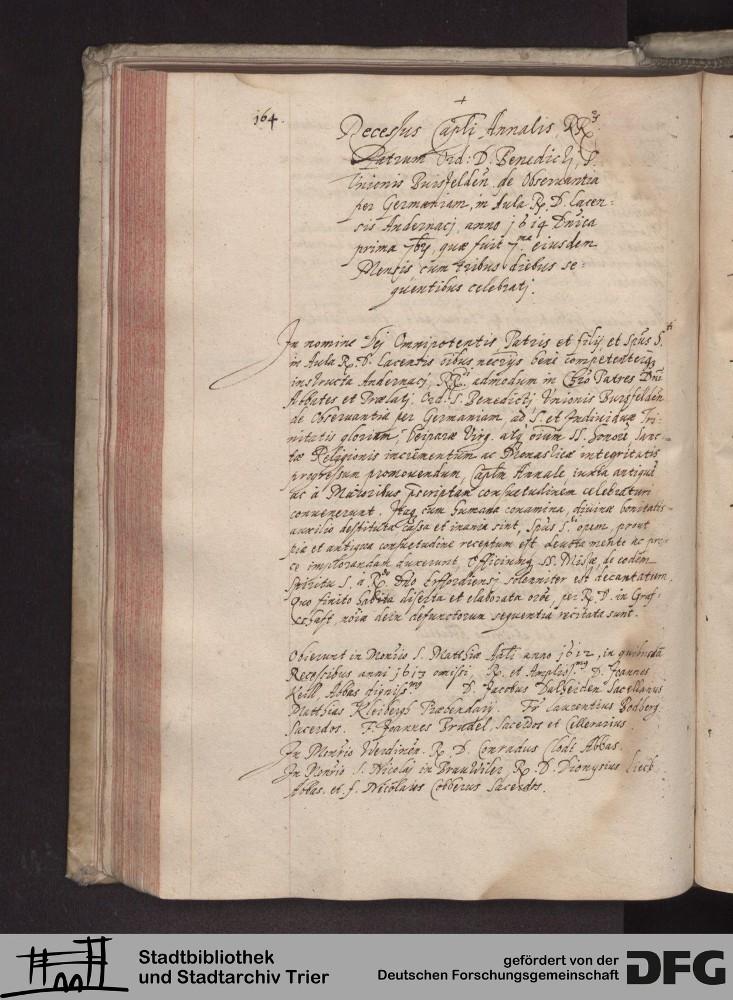 164.
+
Recessus Capli Annalis RR.
Patrum Ord: D. Benedicti,
Unionis Bursfelden̄, de Observantia
per Germaniam, in Aula R. D. Lacen=
sis Andernaci, anno 1614 Dnica
prima 7bris, quæ fuit 7.ma eiusdem
Mensis cum tribus diebus se=
quentibus celebrati.
In nomine Dei Omnipotentis Patris et Filij et Spūs S.ti
in Aula R. D. Lacensis oībus necrijs bene competenterq3
instructa Andernaci, RR. admodum in Chrō Patres Dnī
Abbates et Prælati Ord. S. Benedicti Unionis Bursfelden̄
de Observantia per Germaniam, ad S. et Individuæ Tri=
nitatis gloriam, Deiparæ Virg. atq oīum SS. honorē, Sanc=
tæ Religionis incrementum ac Monasticæ integritatis
progressum promovendum, Caplm Annale, iuxta antiquā
ac à Maioribus pscriptam consuetudinem celebraturi
convenerunt. Itaq cum humana conamina, divinæ bonitatis
auxilio destituta cassa et inania sint, Spūs S.ti opem, prout
pia et antiqua consuetudine receptum est devota mente ac pre=
ce implorandam duxerunt, Officiumq SS. Missæ, de eodem
Spiritu S. à R. Dno Erffordiensi solenniter est decantatum,
Quo finito habita diserta et elaborata oroē, per R. D. in Graf=
schaft, noīa dein defunctorum sequentia recitata sunt.
Obierunt in Monrio S. Matthiæ Apli anno 1612, in quibusdā
Recessibus anni 1613 omissi, R. et Ampliss.mq D. Joannes
Keill Abbas digniss.mq D. Jacobus Dalheiden Sacellanus
Matthias Kleibergh Præbendarij. Fr Laurentius Bodberg
Sacerdos. F. Joannes Bradel Sacerdos et Cellerarius.
In Monrio Werdinen̄. R. D. Conradus Clodt Abbas.
In Monrio S. Nicolai in Brauwiler R. D. Dionysius
Abbas. et f. Nicolaus Cobberus Sacerdos.
Stadtbibliothek
und Stadtarchiv Trier
gefördert von der
Deutschen Forschungsgemeinschaft
DFG